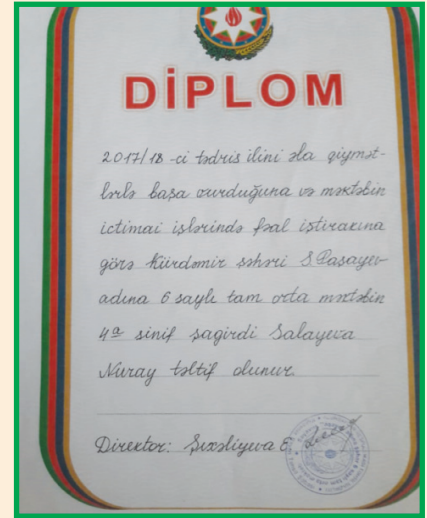 DİPLOM
2017/18-ci tədris ilini əla qiymət-
lərlə başa vurduğuna və məktəbin
ictimai işlərində fəal iştirakına
görə Kürdəmir şəhəri S.Paşayev
adına 6 saylı tam orta məktəbin
4a sinif şagirdi Salayeva
Nuray təltif olunur.
Direktor: Şıxəliyeva E.